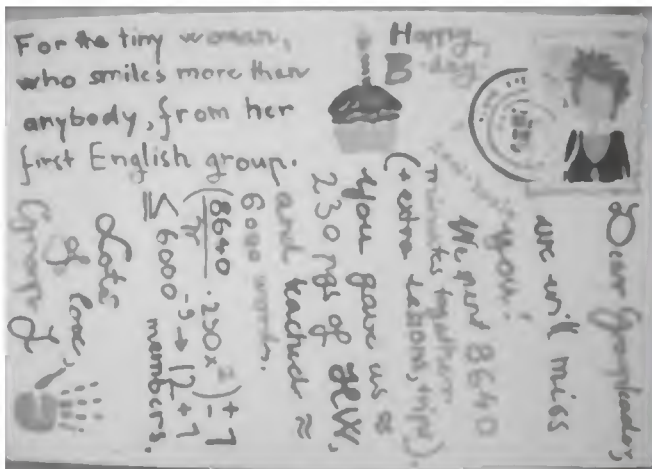 For the tiny woman,
who smiles more than
anybody, from her
first English group.
Happy
B-day!
Dear Groupleader,
we will miss
you!
We spent 8640
minutes together
(+ extra lessons, trips).
you gave us ≈
230 pgs of HW,
and teached ≈
6000 words.
(8640/π · 230x²) ± 7
≤ 6000⁻⁹ → 12 + 7
members.
Lots
of love,
Group J